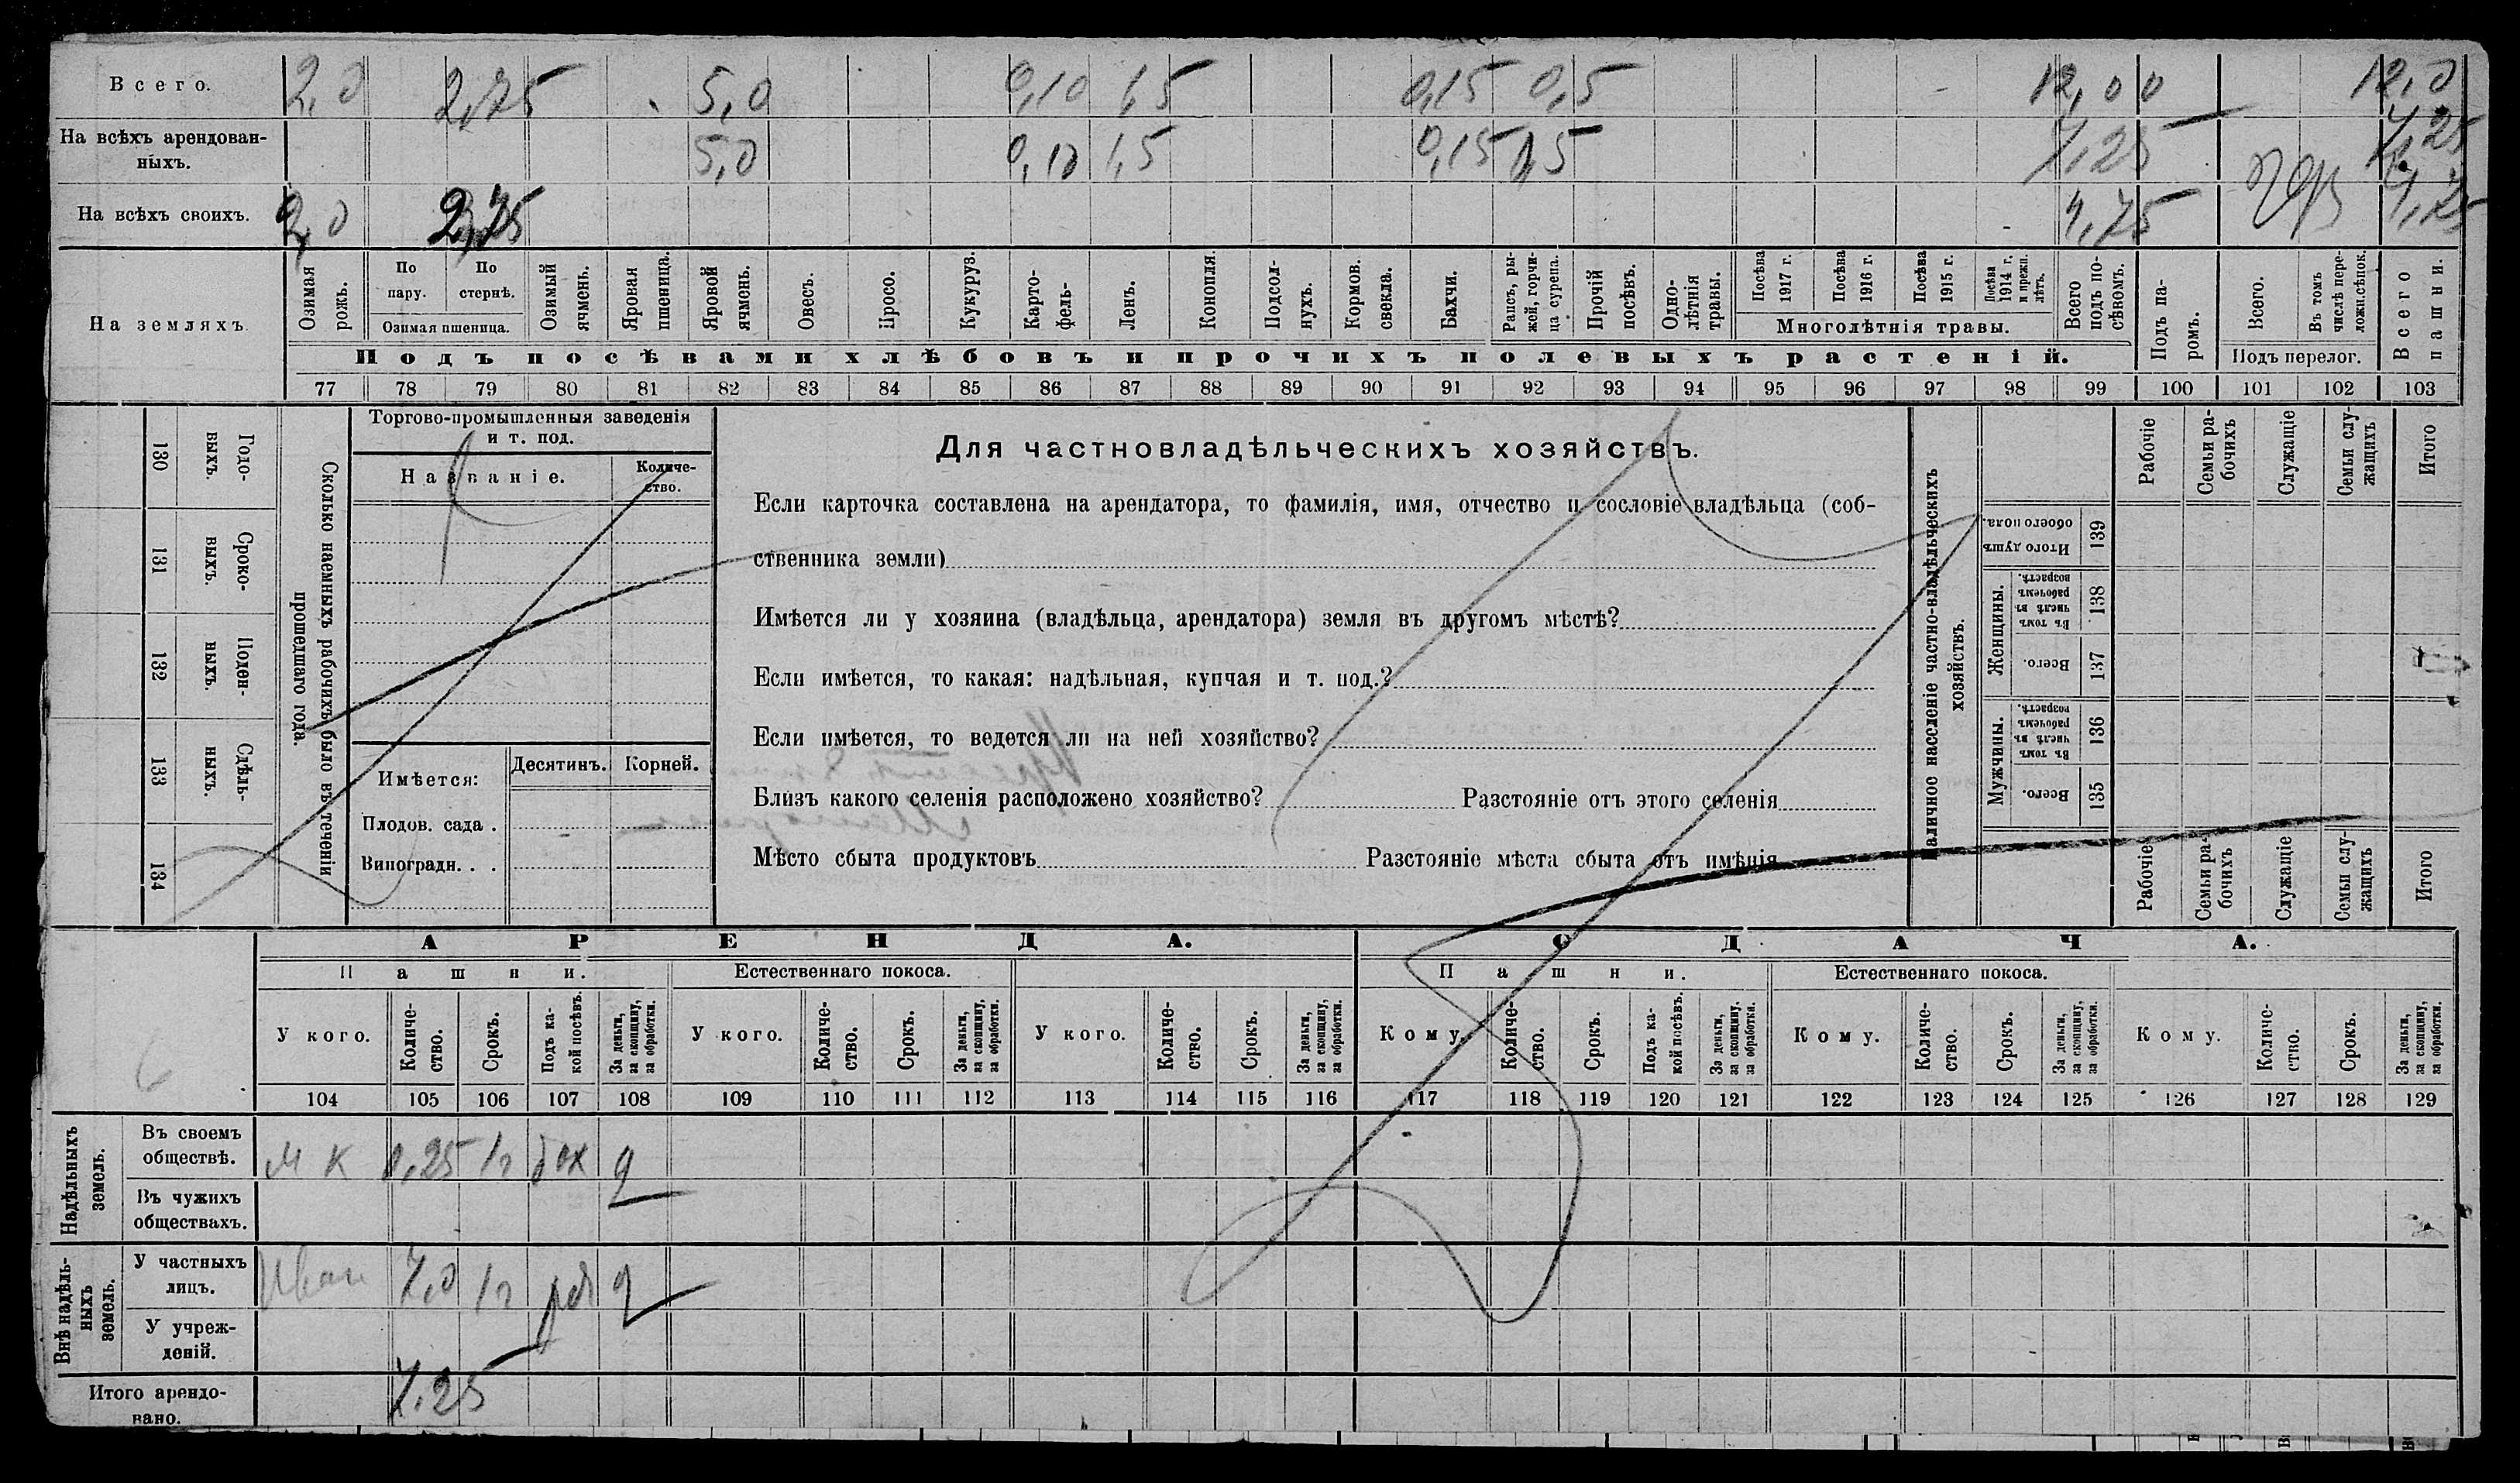 Всего. 2,0 2,75 5,0 0,10 1,5 0,15 0,5 12,00 12,0
На всѣхъ арендован-
ныхъ. 5,0 0,10 1,5 0,15 7,25 7,25
На всѣхъ своихъ. 2,0 2,75 4,75
На земляхъ
Озимая рожь.
По пару.
По стернѣ.
Озимая пшеница.
Озимый ячмень.
Яровая пшеница.
Яровой ячмень.
Овесъ.
Просо.
Кукуруз.
Карто-
фель-
Ленъ.
Конопля.
Подсол-
нухъ.
Кормов. свекла.
Бахчи.
Рапсъ, ры-
жей, горчи-
ца сурепа.
Прочій посѣвъ.
Одно-
лѣтнія травы.
Посѣва 1917 г.
Посѣва 1916 г.
Посѣва 1915 г.
Посѣва 1914 г. и прежн. лѣтъ.
Многолѣтнія травы.
Всего подъ по-
сѣвомъ.
Подъ па-
ромъ.
Всего.
Въ томъ числѣ пере-
ложн.сѣнок.
Подъ перелог.
Всего пашни.
Подъ посѣвами хлѣбовъ и прочихъ полевыхъ растеній.
77 78 79 80 81 82 83 84 85 86 87 88 89 90 91 92 93 94 95 96 97 98 99 100 101 102 103
130 Годо-
выхъ.
131 Сроко-
выхъ.
132 Поден-
ныхъ.
133 Сдѣль-
ныхъ.
134
Сколько наемныхъ рабочихъ было въ теченіи
прошедшаго года.
Торгово-промышленныя заведенія
и т. под.
Названіе.
Количе-
ство.
Имѣется:
Десятинъ. Корней.
Плодов. сада .
Виноградн. . .
Для частновладѣльческихъ хозяйствъ.
Если карточка составлена на арендатора, то фамилія, имя, отчество и сословіе владѣльца (соб-
ственника земли)
Имѣется ли у хозяина (владѣльца, арендатора) земля въ другомъ мѣстѣ?
Если имѣется, то какая: надѣльная, купчая и т. под.?
Если имѣется, то ведется ли на ней хозяйство?
Близъ какого селенія расположено хозяйство? Разстояніе отъ этого селенія
Мѣсто сбыта продуктовъ Разстояніе мѣста сбыта отъ имѣнія
Наличное населеніе частно-владѣльческихъ
хозяйствъ.
Рабочіе
Семьи ра-
бочихъ
Служащіе
Семьи слу-
жащихъ
Итого
Итого душъ обоего пола. 139
Женщины.
Въ томъ числѣ въ рабочемъ возрастѣ. 138
Всего. 137
Мужчины.
Въ томъ числѣ въ рабочемъ возрастѣ. 136
Всего. 135
Рабочіе
Семьи ра-
бочихъ
Служащіе
Семьи слу-
жащихъ
Итого
АРЕНДА. СДАЧА.
Пашни. Естественнаго покоса. Пашни. Естественнаго покоса.
У кого.
Количе-
ство.
Срокъ.
Подъ ка-
кой посѣвъ.
За деньги,
за скопщину,
за обработки.
У кого.
Количе-
ство.
Срокъ.
За деньги,
за скопщину,
за обработки.
У кого.
Количе-
ство.
Срокъ.
За деньги,
за скопщину,
за обработки.
Кому.
Количе-
ство.
Срокъ.
Подъ ка-
кой посѣвъ.
За деньги,
за скопщину,
за обработки.
Кому.
Количе-
ство.
Срокъ.
За деньги,
за скопщину,
за обработки.
Кому.
Количе-
ство.
Срокъ.
За деньги,
за скопщину,
за обработки.
104 105 106 107 108 109 110 111 112 113 114 115 116 117 118 119 120 121 122 123 124 125 126 127 128 129
Надѣльныхъ
земель.
Въ своемъ
обществѣ. м к 0,25 1г бах д
Въ чужихъ
обществахъ.
Внѣ надѣль-
ныхъ
земель.
У частныхъ
лицъ. Иван 7,0 1г д
У учреж-
деній.
Итого арендо-
вано. 7.25